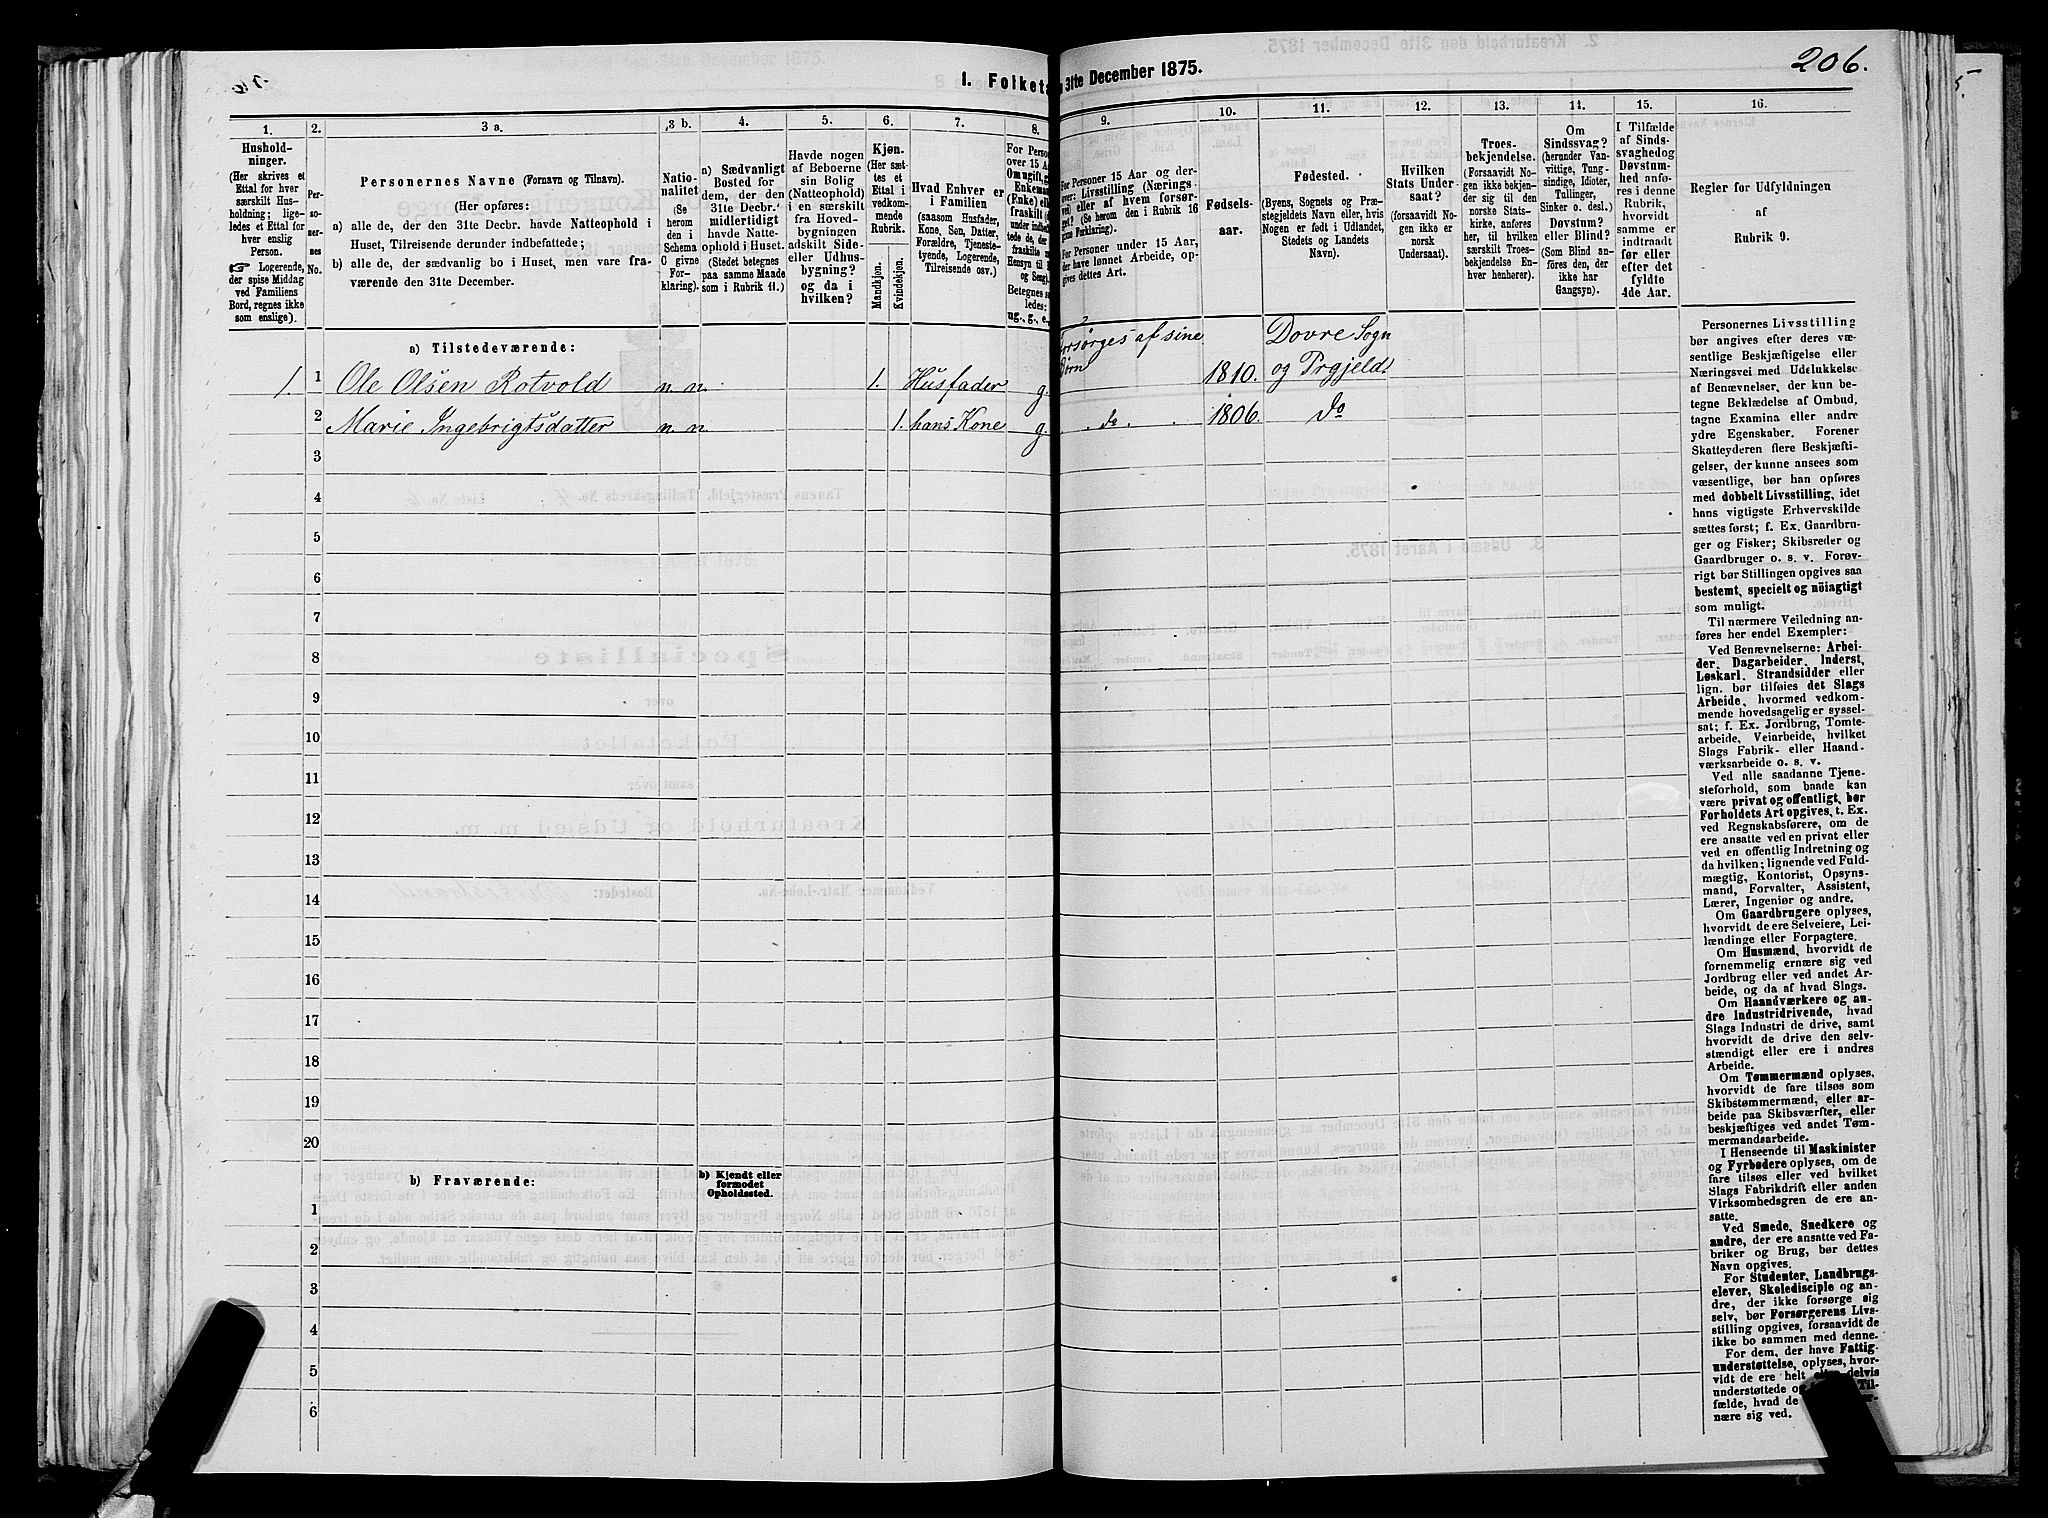 206.
I. Folketa
31te December 1875.
1.
Hushold-
ninger.
(Her skrives et
Ettal for hver
særskilt Hus-
holdning; lige-
ledes et Ettal for
hver enslig
Person.
☞ Logerende,
der spise Middag
ved Familiens
Bord, regnes ikke
som enslige).
2.
Per-
so-
ner-
nes
No.
3 a.
Personernes Navne (Fornavn og Tilnavn).
(Her opføres:
a) alle de, der den 31te Decbr. havde Natteophold i
Huset, Tilreisende derunder indbefattede;
b) alle de, der sædvanlig bo i Huset, men vare fra-
værende den 31te December.
3 b.
Natio-
nalitet
(Se
herom
den i
Schema
C givne
For-
klaring).
4.
a) Sædvanligt
Bosted for
dem, der den
31te Decbr.
midlertidigt
havde Natte-
ophold i Huset.
(Stedet betegnes
paa samme Maade
som i Rubrik 11.)
5.
Havde nogen
af Beboerne
sin Bolig
(Natteophold)
i en særskilt
fra Hoved-
bygningen
adskilt Side-
eller Udhus-
bygning?
og da i
hvilken?
6.
Kjøn.
(Her sæt-
tes et
Ettal i
vedkom-
mende
Rubrik.
Mandkjøn.
Kvindekjøn.
7.
Hvad Enhver er
i Familien
(saasom Husfader,
Kone, Søn, Datter,
Forældre, Tjeneste-
tyende, Logerende,
Tilreisende osv.)
8.
For Person
over 15 Aa
Om ugift, g
Enkeman
(Enke) ell
fraskilt
9.
For Personer 15 Aar og der-
over: Livsstilling (Nærings-
vei) eller af hvem forsør-
get? (Se herom den i Rubrik 16
givne Forklaring).
For Personer under 15 Aar,
der have lønnet Arbeide, op-
gives dettes Art.
10.
Fødsels-
aar.
11.
Fødested.
(Byens, Sognets og Præ-
stegjeldets Navn eller, hvis
Nogen er født i Udlandet,
Stedets og Landets
Navn).
12.
Hvilken
Stats Under-
saat?
(forsaavidt No-
gen ikke er
norsk
Undersaat).
13.
Troes-
bekjendelse.
(Forsaavidt No-
gen ikke bekjen-
der sig til den
norske Stats-
kirke, anføres
her, til hvilken
særskilt Troes-
bekjendelse En-
hver henhører).
14.
Om
Sindssvag?
(herunder Van-
vittige, Tung-
sindige, Idioter,
Tullinger,
Sinker o. desl.)
Døvstum?
eller Blind?
(Som Blind an-
føres den, der
ikke har
Gangsyn).
15.
I Tilfælde
af Sinds-
svaghed og
Døvstum-
hed anfø-
res i denne
Rubrik,
hvorvidt
samme er
indtraadt
før eller
efter det
fyldte
4de Aar.
16.
Regler for Udfyldningen
af
Rubrik 9.
a) Tilstedeværende:
1. 1 Ole Olsen Rotvold n. n. 1. Husfader g. Forsørges af sine Børn 1810. Dovre Sogn og Prgjeld
2 Marie Ingebrigtsdatter n. n. 1. hans Kone g. do. 1806. do
3
4
5
6
7
8
9
10
11
12
13
14
15
16
17
18
19
20
b) Fraværende:
b) Kjendt eller
formodet
Opholdssted.
1
2
3
4
5
6
Personernes Livsstilling
bør angives efter deres væ-
sentlige Beskjæftigelse eller
Næringsvei med Udelukkelse
af Benævnelser, der kun be-
tegne Beklædelse af Ombud,
tagne Examina eller andre
ydre Egenskaber. Forener
Skatteyderen flere Beskjæfti-
gelser, der kunne ansees som
væsentlige, bør han opføres
med dobbelt Livsstilling, idet
hans vigtigste Erhvervskilde
sættes først; f. Ex. Gaardbru-
ger og Fisker; Skibsreder og
Gaardbruger o. s. v. Forøv-
rigt bør Stillingen opgives saa
bestemt, specielt og nöiagtigt
som muligt.
Til nærmere Veiledning an-
føres her endel Exempler:
Ved Benævnelserne: Arbei-
der, Dagarbeider, Inderst,
Løskarl, Strandsidder eller
lign. bør tilføies det Slags
Arbeide, hvormed vedkom-
mende hovedsagelig er syssel-
sat; f. Ex. Jordbrug, Tomte-
arbeide, Veiarbeide, hvilket
Slags Fabrik- eller Haand-
værksarbeide o. s. v.
Ved alle saadanne Tjene-
steforhold, som baade kan
være privat og offentligt, bør
Forholdets Art opgives, t. Ex.
ved Regnskabsførere, om de
ere ansatte ved en privat eller
ved en offentlig Indretning og
da hvilken; lignende ved Fuld-
mægtig, Kontorist, Opsyns-
mand, Forvalter, Assistent,
Lærer, Ingeniør og andre.
Om Gaardbrugere oplyses,
hvorvidt de ere Selveiere, Lei-
lændinge eller Forpagtere.
Om Husmænd, hvorvidt de
fornemmelig ernære sig ved
Jordbrug eller ved andet Ar-
beide, og da af hvad Slags.
Om Haandværkere og an-
dre Industridrivende, hvad
Slags Industri de drive, samt
hvorvidt de drive den selv-
stændigt eller ere i andres
Arbeide.
Om Tømmermænd oplyses,
hvorvidt de fare tilsøs som
Skibstømmermænd, eller ar-
beide paa Skibsværfter, eller
beskjæftiges ved andet Tøm-
mermandsarbeide.
I Henseende til Maskinister
og Fyrbødere oplyses, om de
fare tilsøs eller ved hvilket
Slags Fabrikdrift eller anden
Virksomhedsgren de ere an-
satte.
Ved Smede, Snedkere og
andre, der ere ansatte ved Fa-
briker og Brug, bør dettes
Navn opgives.
For Studenter, Landbrugs-
elever, Skoledisciple og an-
dre, der ikke forsørge sig
selv, bør Forsørgerens Livs-
stilling opgives, forsaavidt de
ikke bo sammen med denne.
For dem, der have Fattig-
understøttelse, oplyses, hvor-
vidt de ere helt eller delvis
understøttede og
fælde, hvad de
nære sig ved.